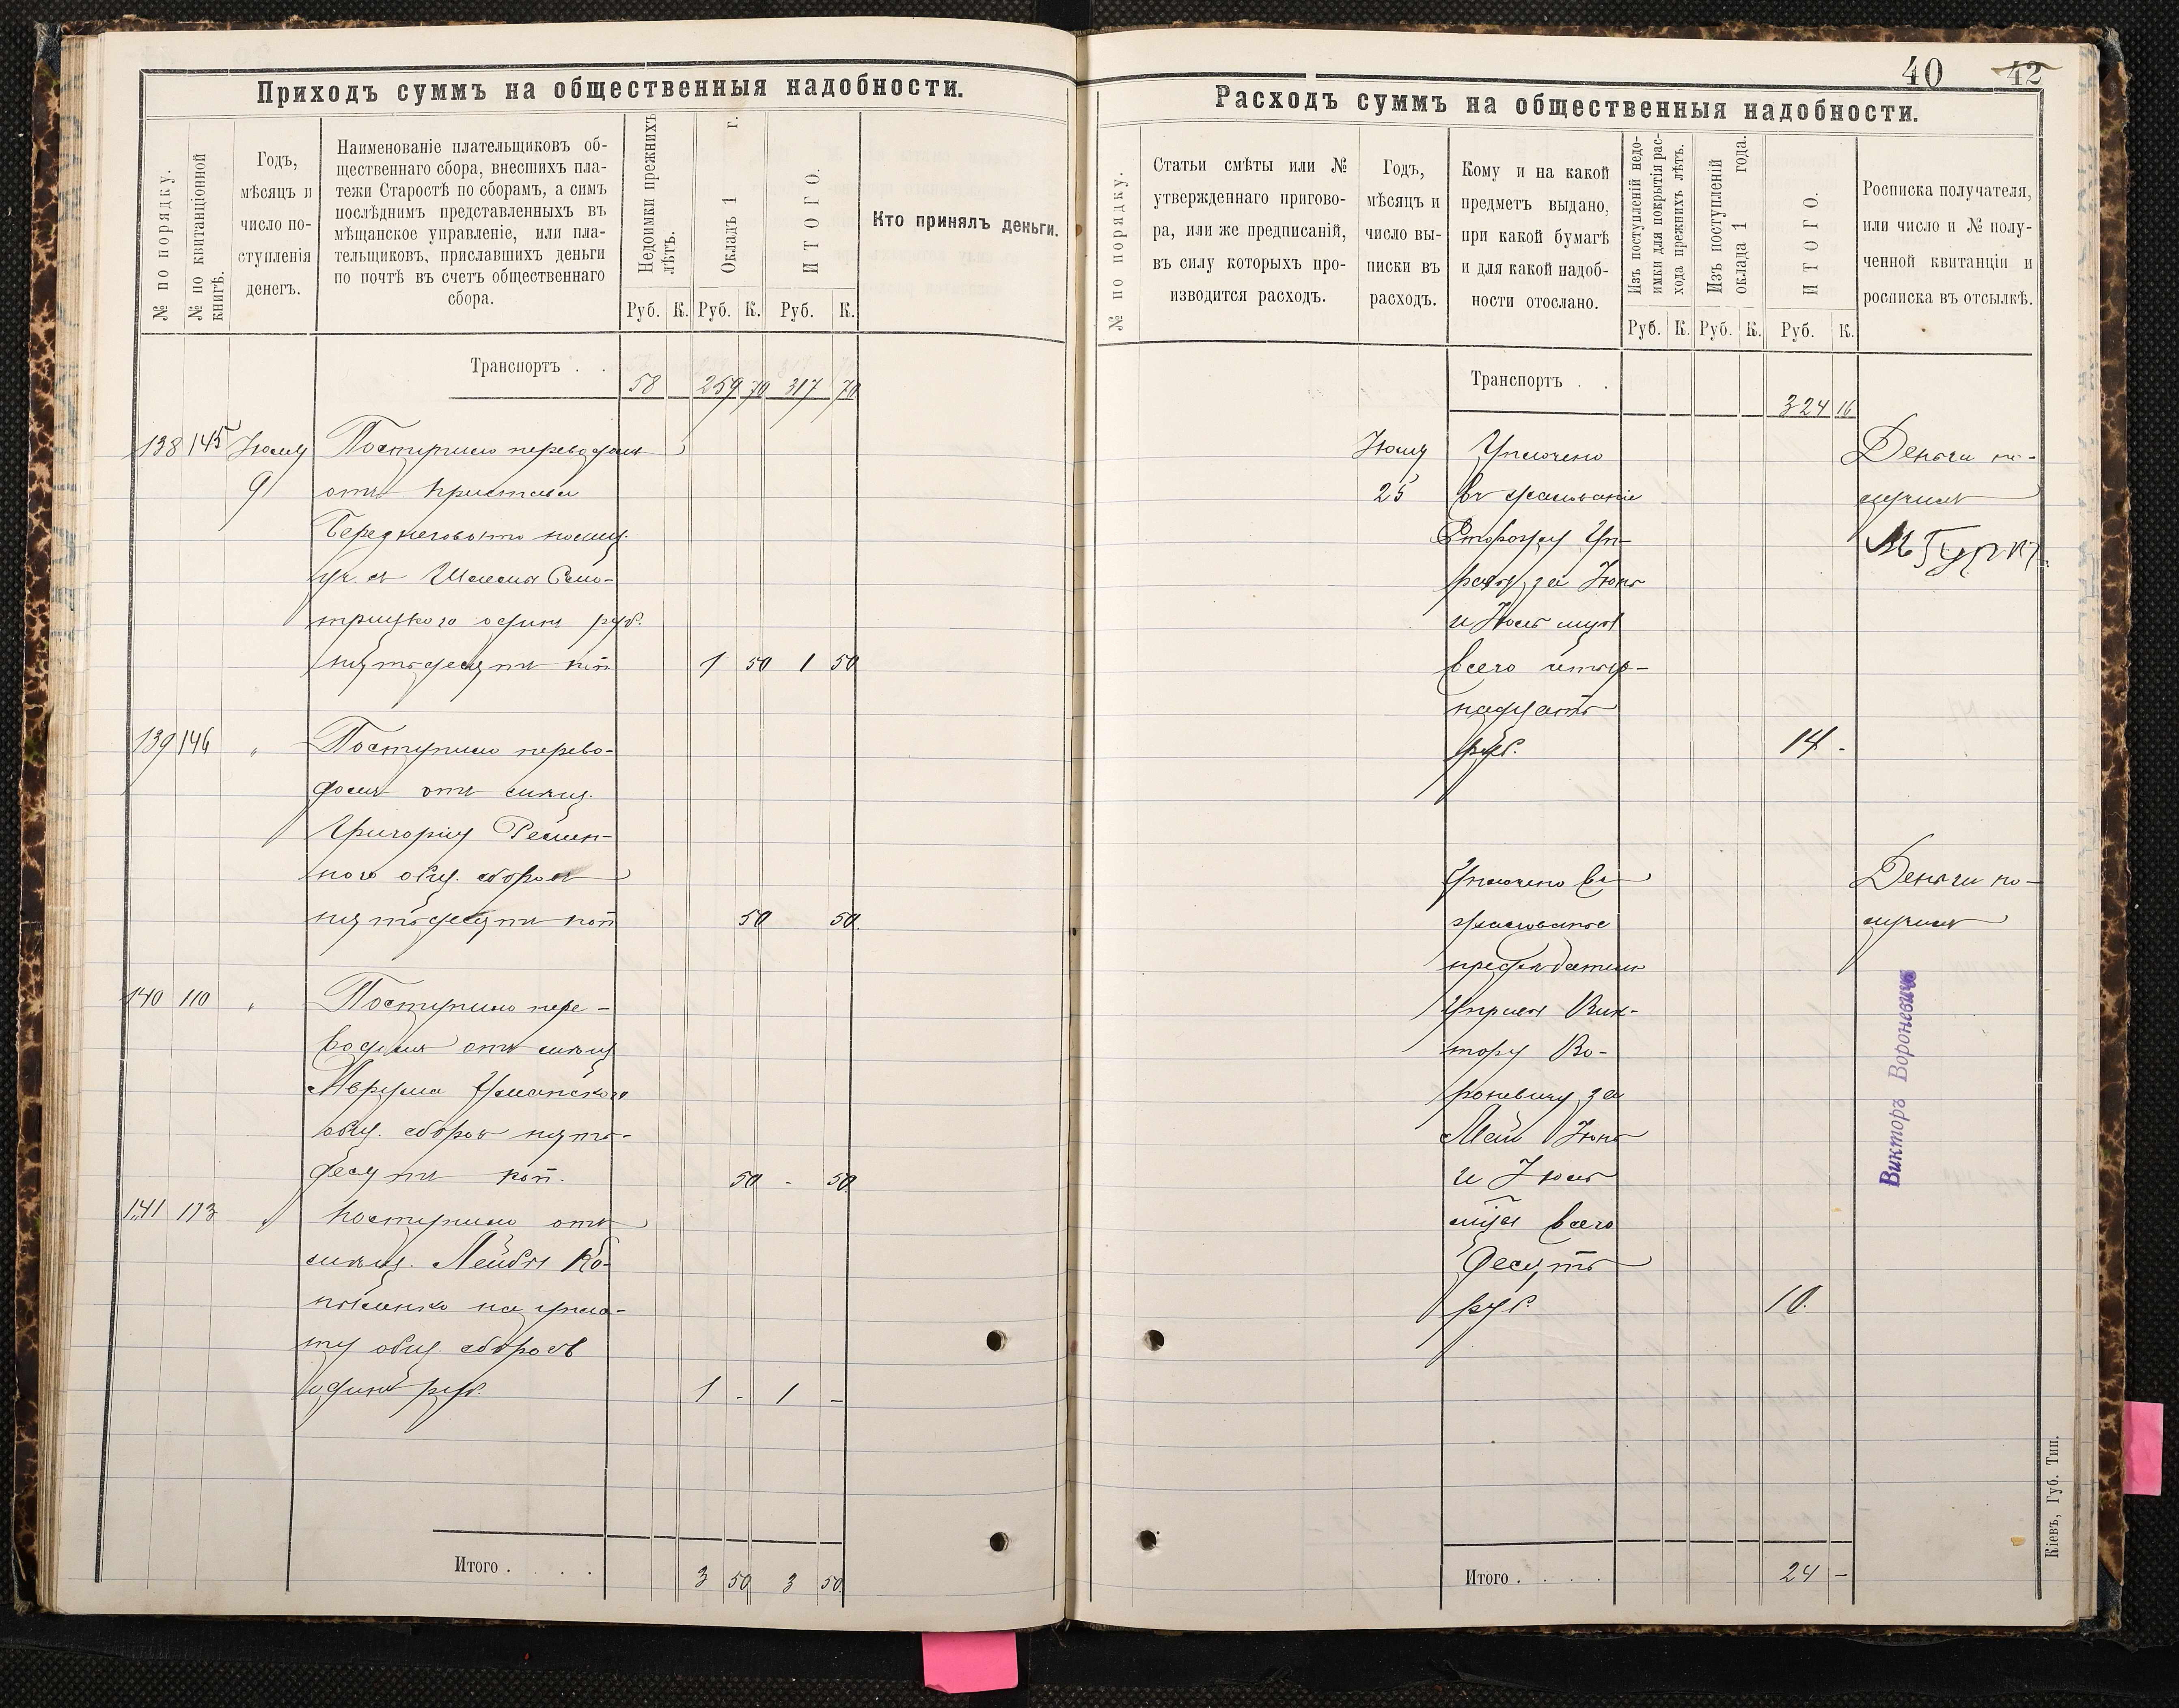 Приходъ суммъ на общественныя надобности.
№ по порядку.
№ по квитанціонной
книгѣ.
Годъ,
мѣсяцъ и
число по-
ступленія
денегъ.
Наименованіе плательщиковъ об-
щественнаго сбора, внесшихъ пла-
тежи Старостѣ по сборамъ, а симъ
послѣднимъ представленныхъ въ
мѣщанское управленіе, или пла-
тельщиковъ, приславшихъ деньги
по почтѣ въ счетъ общественнаго
сбора.
Недоимки прежнихъ
лѣтъ.
Окладъ 1 г.
ИТОГО.
Кто принялъ деньги.
Руб. К. Руб. К. Руб. К.
Транспортъ . .
58 259 70 317 70
138 145 Іюля Поступило переводомъ
9 отъ пристава
руб.
пятьдесятъ коп 1 50 1 50
139 146 " Поступило перево-
домъ отъ мѣщ.
общ. сбора
пятьдесятъ коп 50 50.
140 110 " Поступило пере-
водомъ отъ мѣщ
Аврума Уманскаго
общ. сбора пять-
десятъ коп. 50 - 50
141 113 " Поступило отъ
мѣщ. Лейбы Ко-
на упла-
ту общ. сборовъ
одинъ руб. 1 - 1 -
Итого . . . .
3 50 3 50
40 42
Расходъ суммъ на общественныя надобности.
№ по порядку.
Статьи смѣты или №
утвержденнаго пригово-
ра, или же предписаній,
въ силу которыхъ про-
изводится расходъ.
Годъ,
мѣсяцъ и
число вы-
писки въ
расходъ.
Кому и на какой
предметъ выдано,
при какой бумагѣ
и для какой надоб-
ности отослано.
Изъ поступленій недо-
имки для покрытія рас-
хода прежнихъ лѣтъ.
Изъ поступленій
оклада 1 года.
ИТОГО.
Росписка получателя,
или число и № полу-
ченной квитанціи и
росписка въ отсылкѣ.
Руб. К. Руб. К. Руб. К.
Транспортъ . .
324 16
Іюля Уплочено Деньги по-
25 въ жалованіе лучилъ
Сторожу Уп-
за Іюнь
и Іюль
всего четыр-
надцать
руб. 14 -
Уплочено въ Деньги по-
жалованье лучилъ
Вик-
тору Во-
роневичу за
Май Іюнь
и Іюль
всего
десять
руб. 10.
Викторъ Вороневичъ
Итого . . . .
24 -
Кіевъ, Губ. Тип.